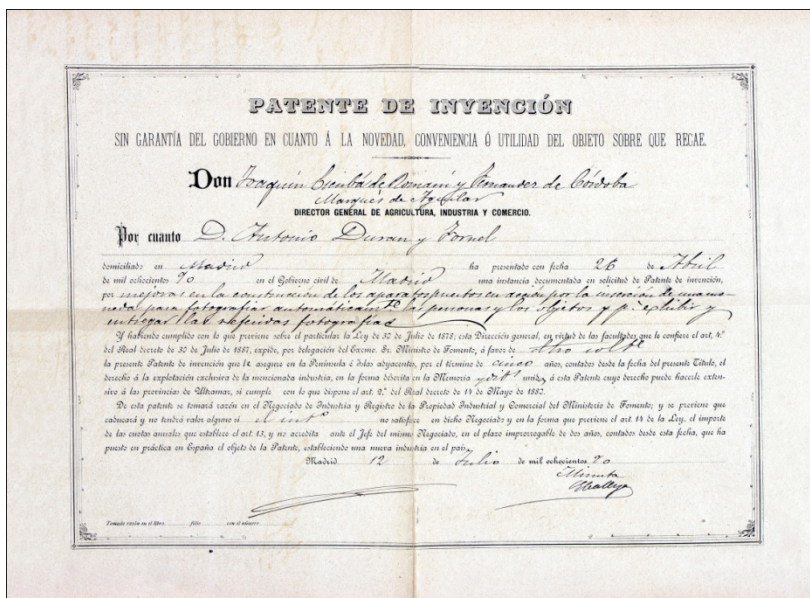 PATENTE DE INVENCIÓN
SIN GARANTÍA DEL GOBIERNO EN CUANTO Á LA NOVEDAD, CONVENIENCIA Ó UTILIDAD DEL OBJETO SOBRE QUE RECAE.
Don Joaquín de y Fernandez de Córdoba
Marqués de Aguilar
DIRECTOR GENERAL DE AGRICULTURA, INDUSTRIA Y COMERCIO.
Por cuanto D. Antonio Duran y
domiciliado en Madrid ha presentado con fecha 26 de Abril
de mil ochocientos 90 en el Gobierno civil de Madrid una instancia documentada en solicitud de Patente de invención,
por mejoras en la construcción de los aparatos puestos en acción por la inserción de una mo-
neda para fotografiar automáticamte las personas y los objetos y pa exhibir y
entregar las referidas fotografías
Y habiendo cumplido con lo que previene sobre el particular la Ley de 30 de Julio de 1878; esta Dirección general, en virtud de las facultades que le confiere el art. 4.º
del Real decreto de 30 de Julio de 1887, expide, por delegación del Excmo. Sr. Ministro de Fomento, á favor de dicho solte
la presente Patente de invención que le asegure en la Península é Islas adyacentes, por el término de cinco años, contados desde la fecha del presente Título, el
derecho á la explotación exclusiva de la mencionada industria, en la forma descrita en la Memoria unida á esta Patente cuyo derecho puede hacerle exten-
sivo á las provincias de Ultramar, si cumple con lo que dispone el art. 2.º del Real decreto de 14 de Mayo de 1880.
De esta patente se tomará razón en el Negociado de Industria y Registro de la Propiedad Industrial y Comercial del Ministerio de Fomento; y se previene que
caducará y no tendrá valor alguno si el intº no satisface en dicho Negociado y en la forma que previene el art. 14 de la Ley, el importe
de las cuotas anuales que establece el art. 13, y no acredita ante el Jefe del mismo Negociado, en el plazo improrrogable de dos años, contados desde esta fecha, que ha
puesto en práctica en España el objeto de la Patente, estableciendo una nueva industria en el país.
Madrid 12 de Julio de mil ochocientos 90
Minuta
Tomada razón en el libro folio con el número